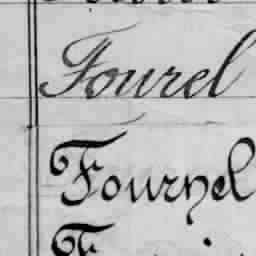 Fourel
Fournel